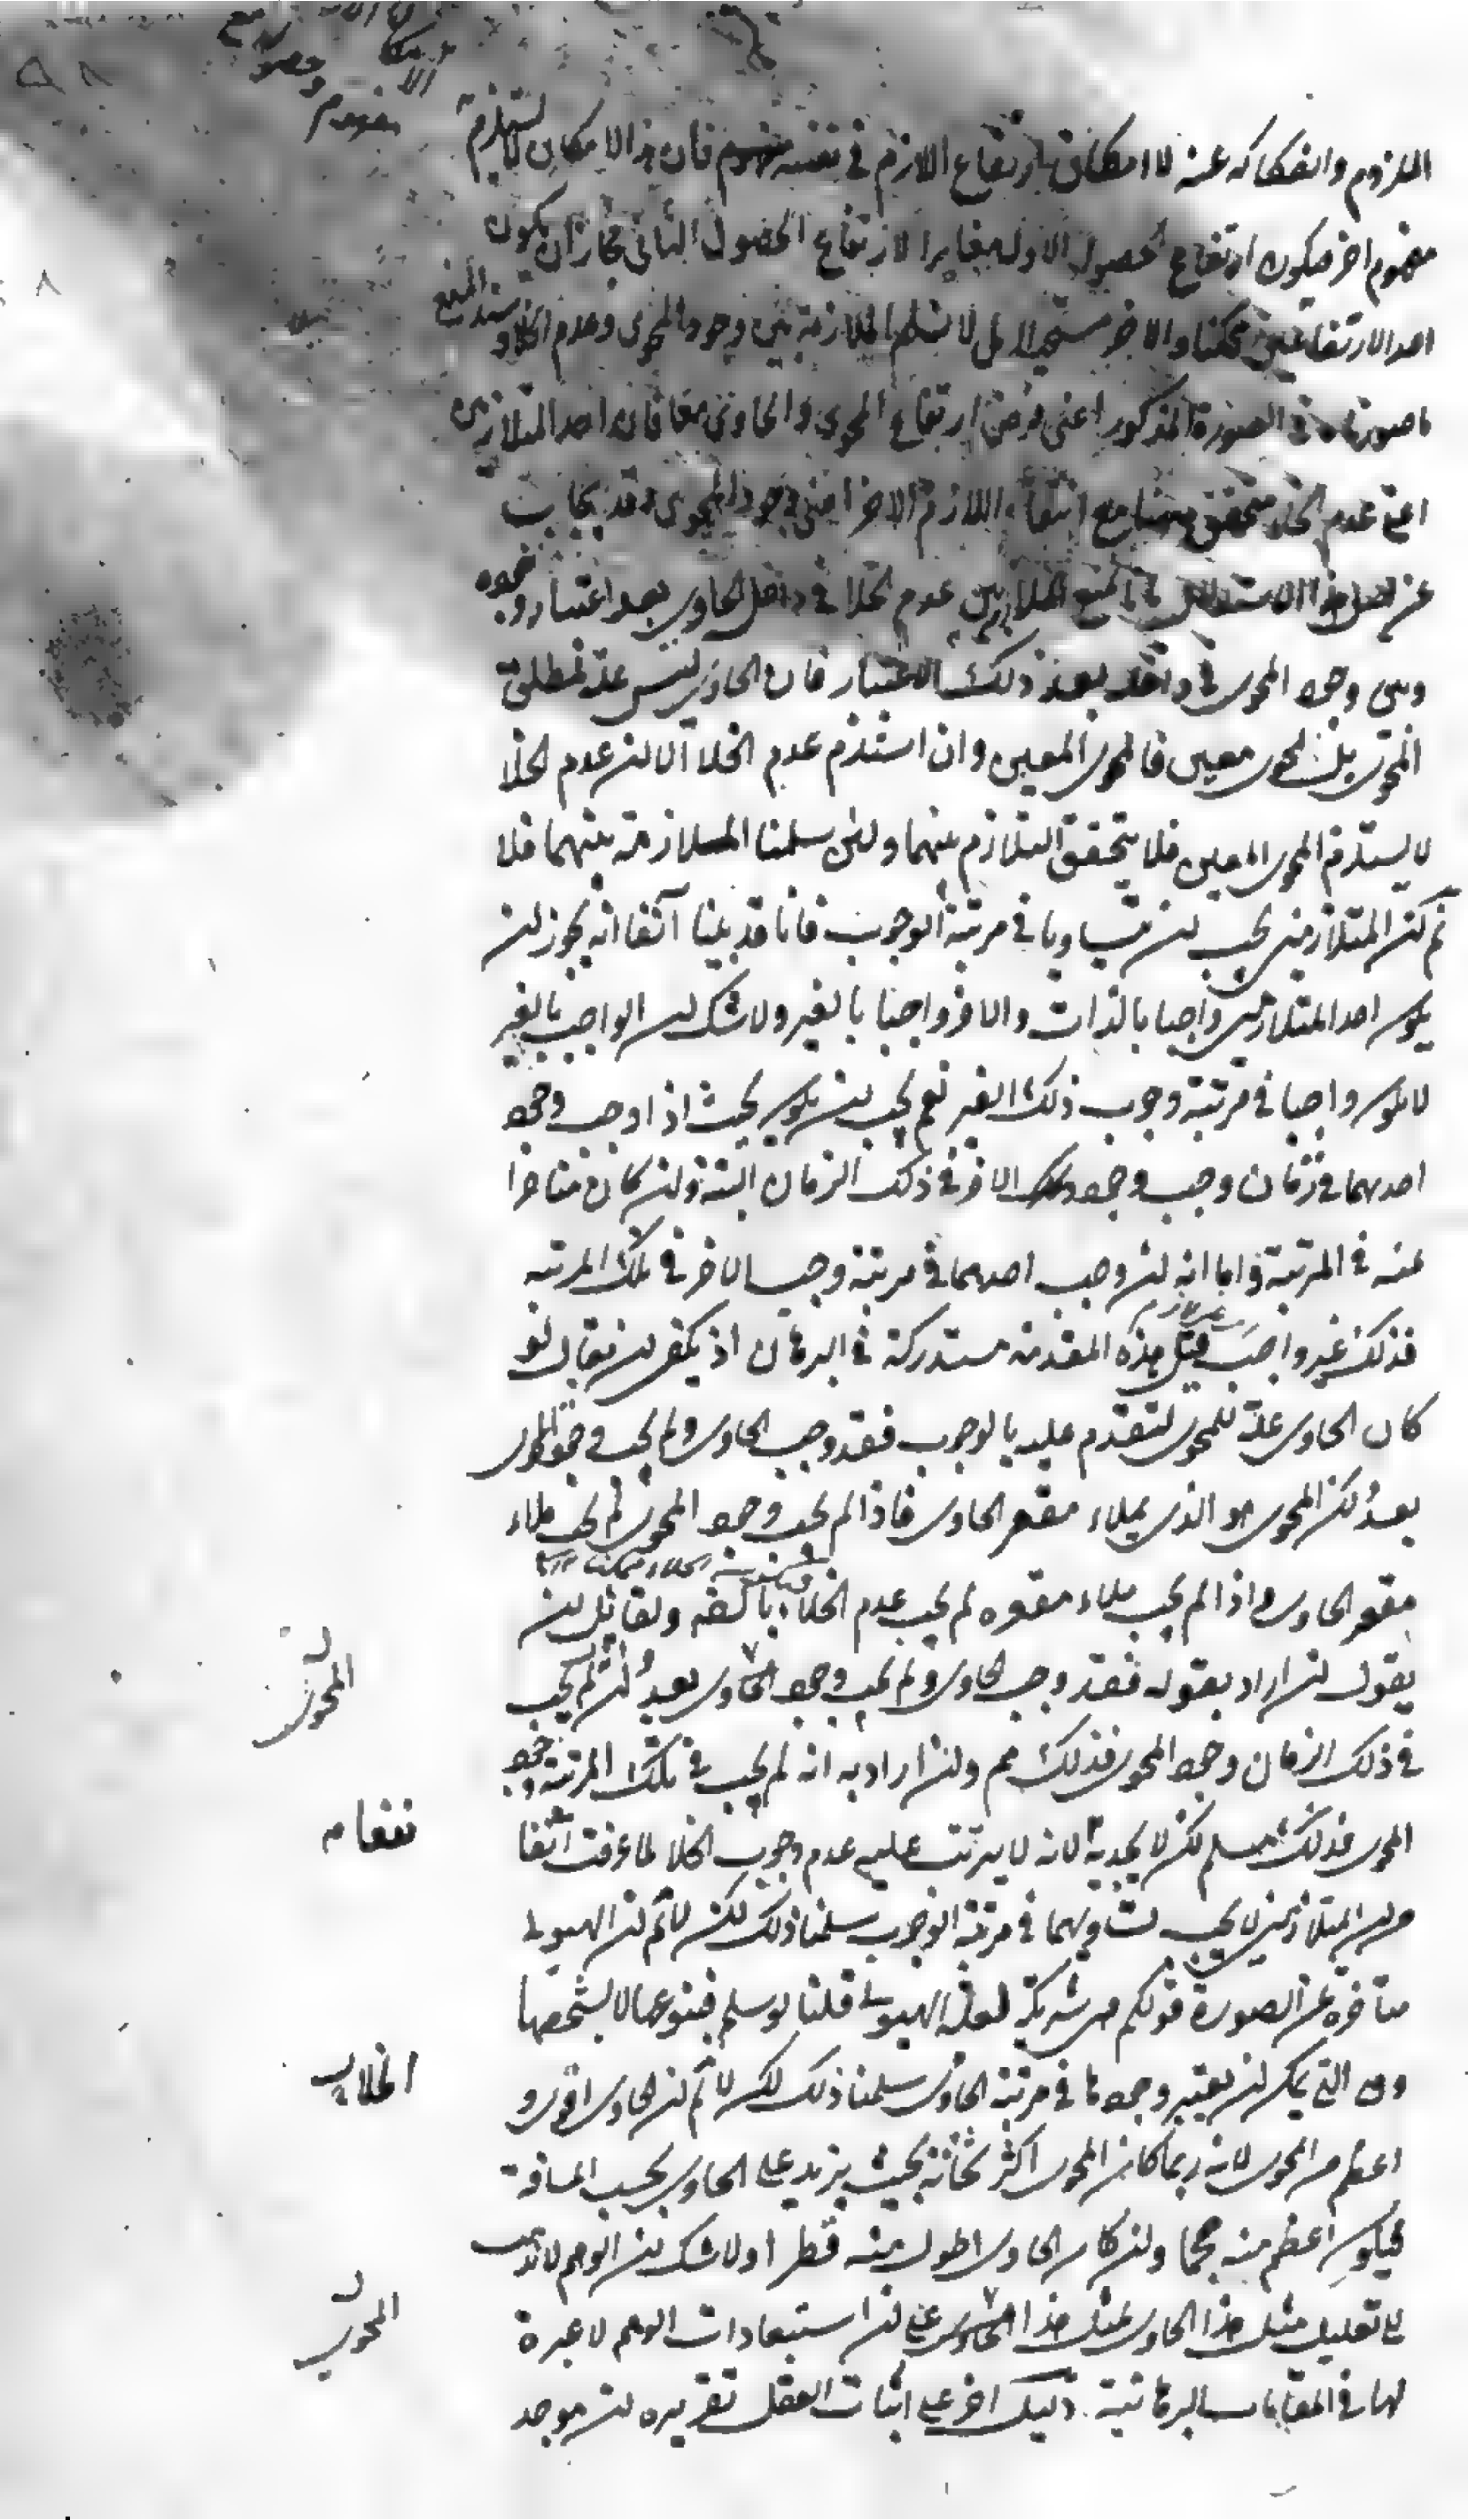 الملزوم وانفكاكه عنه لا امكان ارتفاع اللازم في نفسه فان هذا الامكان لا يستلزم
مفهوم اخر فيكون ارتفاع الحصول الاول مغايرا لارتفاع الحصول الثاني فجاز ان يكون
احد الارتفاعين ممكنا والاخر مستحيلا بل لا نسلم الملازمة بين وجود المحوى وعدم الخلا وسند المنع
ما صورناه في الصورة المذكور اعنى فرض ارتفاع المحوى والحاوى معا فان احد المتلازمين
اعنى عدم الخلا متحقق مع انتفاء اللازم الاخر اعنى وجود المحوى وقد يجاب
عن اصل هذا الاستدلال بالمنع الملازمة بين عدم الخلا في داخل الحاوى بعد اعتبار وجوده
وبين وجود المحوى في داخله بعد ذلك الاعتبار فان الحاوى ليس علة لمطلق
المحوى بل لمحوى معين فالمحوى المعين وان استلزم عدم الخلا الا ان عدم الخلا
لا يستلزم المحوى المعين فلا يتحقق التلازم بينهما ولئن سلمنا الملازمة بينهما فلا
نم ان المتلازمين يجب ان يتساويا في مرتبة الوجوب فانا قد بينا آنفا انه يجوز ان
يكون احد المتلازمين واجبا بالذات والاخر واجبا بالغير ولا شك ان الواجب بالغير
لا يكون واجبا في مرتبة وجوب ذلك الغير نعم يجب ان يكون بحيث اذا وجب وجود
احدهما في زمان وجب وجود الاخر في ذلك الزمان البتة وان كان متاخرا
عنه في المرتبة واما انه ان وجب احدهما في مرتبة وجب الاخر في تلك المرتبة
فذلك غير واجب قيل هذه المقدمة مستدركة في البرهان اذ يكفى ان يقال لو
كان الحاوى علة للمحوى لتقدم عليه بالوجوب فقد وجب الحاوى ولم يجب وجود المحوى
بعد لكن المحوى هو الذى يملاء مقعر الحاوى فاذا لم يجب وجود المحوى لم يجب ملاء
مقعر الحاوى واذا لم يجب ملاء مقعره لم يجب عدم الخلاء ولقائل ان
يقول ان اراد بقوله فقد وجب الحاوى ولم يجب وجود الحاوى بعد ان لم يجب
في ذلك الزمان وجود المحوى فذلك مم وان اراد به انه لم يجب في تلك المرتبة وجود
المحوى فذلك مسلم لكن لا يجديه لانه لا يترتب عليه عدم وجوب الخلا لما عرفت آنفا
من ان المتلازمين لا يجب تساويهما في مرتبة الوجوب سلمنا ذلك لكن لا نم ان الهيولى
متاخرة عن الصورة قولكم هى شريكة لعلة الهيولى قلنا لو سلم فبنوعها لا بشخصها
وهى التى يمكن ان يعتبر وجودها في مرتبة الحاوى سلمنا ذلك لكن لا نم ان الحاوى اقوى و
اعظم من المحوى لانه ربما كان المحوى اكثر ثخانة بحيث يزيد على الحاوى بحسب المسافة
فيكون اعظم منه حجما وان كان الحاوى اطول منه قطرا ولا شك ان الوهم لا يذهب
الى تعليل مثل هذا الحاوى لمثل هذا الحاوى على ان استبعادات الوهم لا عبرة
لها في المقامات البرهانية دليل اخر على اثبات العقل تقريره ان موجد
المحوى
المحوى